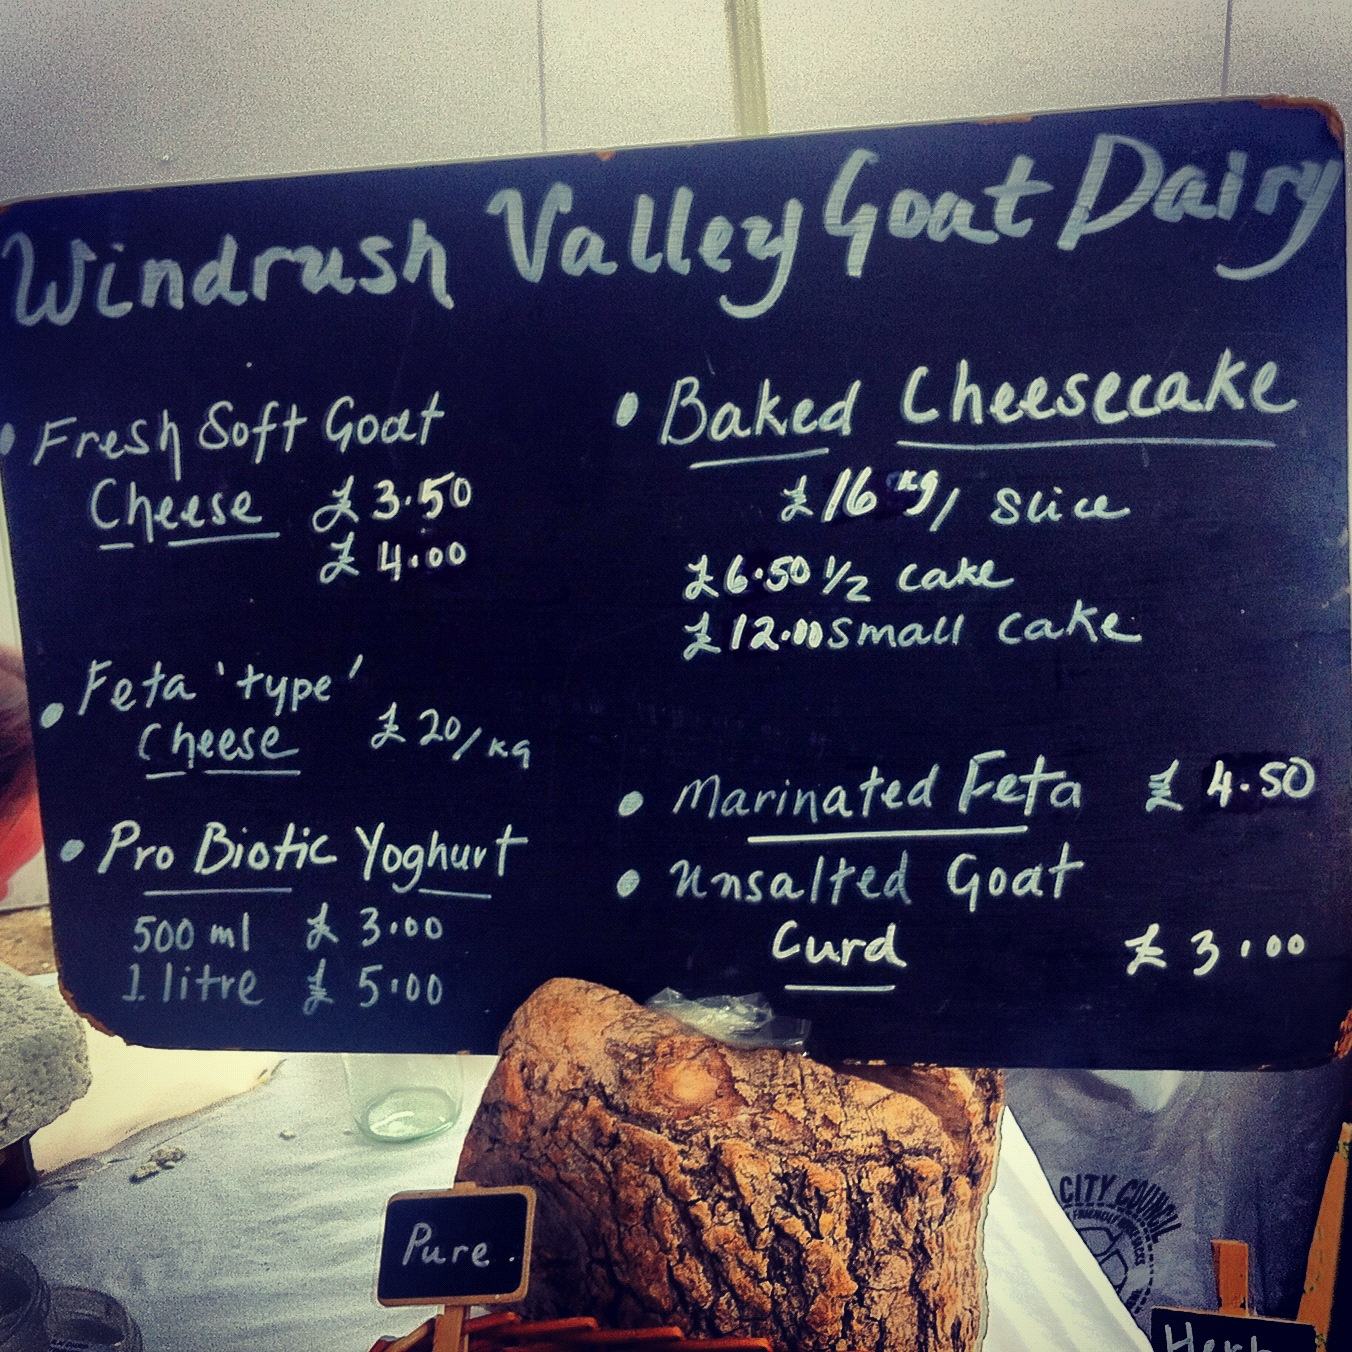 Windrush Valley Goat Dairy
• Fresh Soft Goat
Cheese £3.50
£4.00
• Feta 'type'
Cheese £20/kg
• Pro Biotic Yoghurt
500 ml £3.00
1 litre £5.00
• Baked Cheesecake
£16 kg/ slice
£6.50 1/2 cake
£12.00 small cake
• Marinated Feta £4.50
• Unsalted Goat
Curd £3.00
Pure.
CITY COUNCIL
Herb